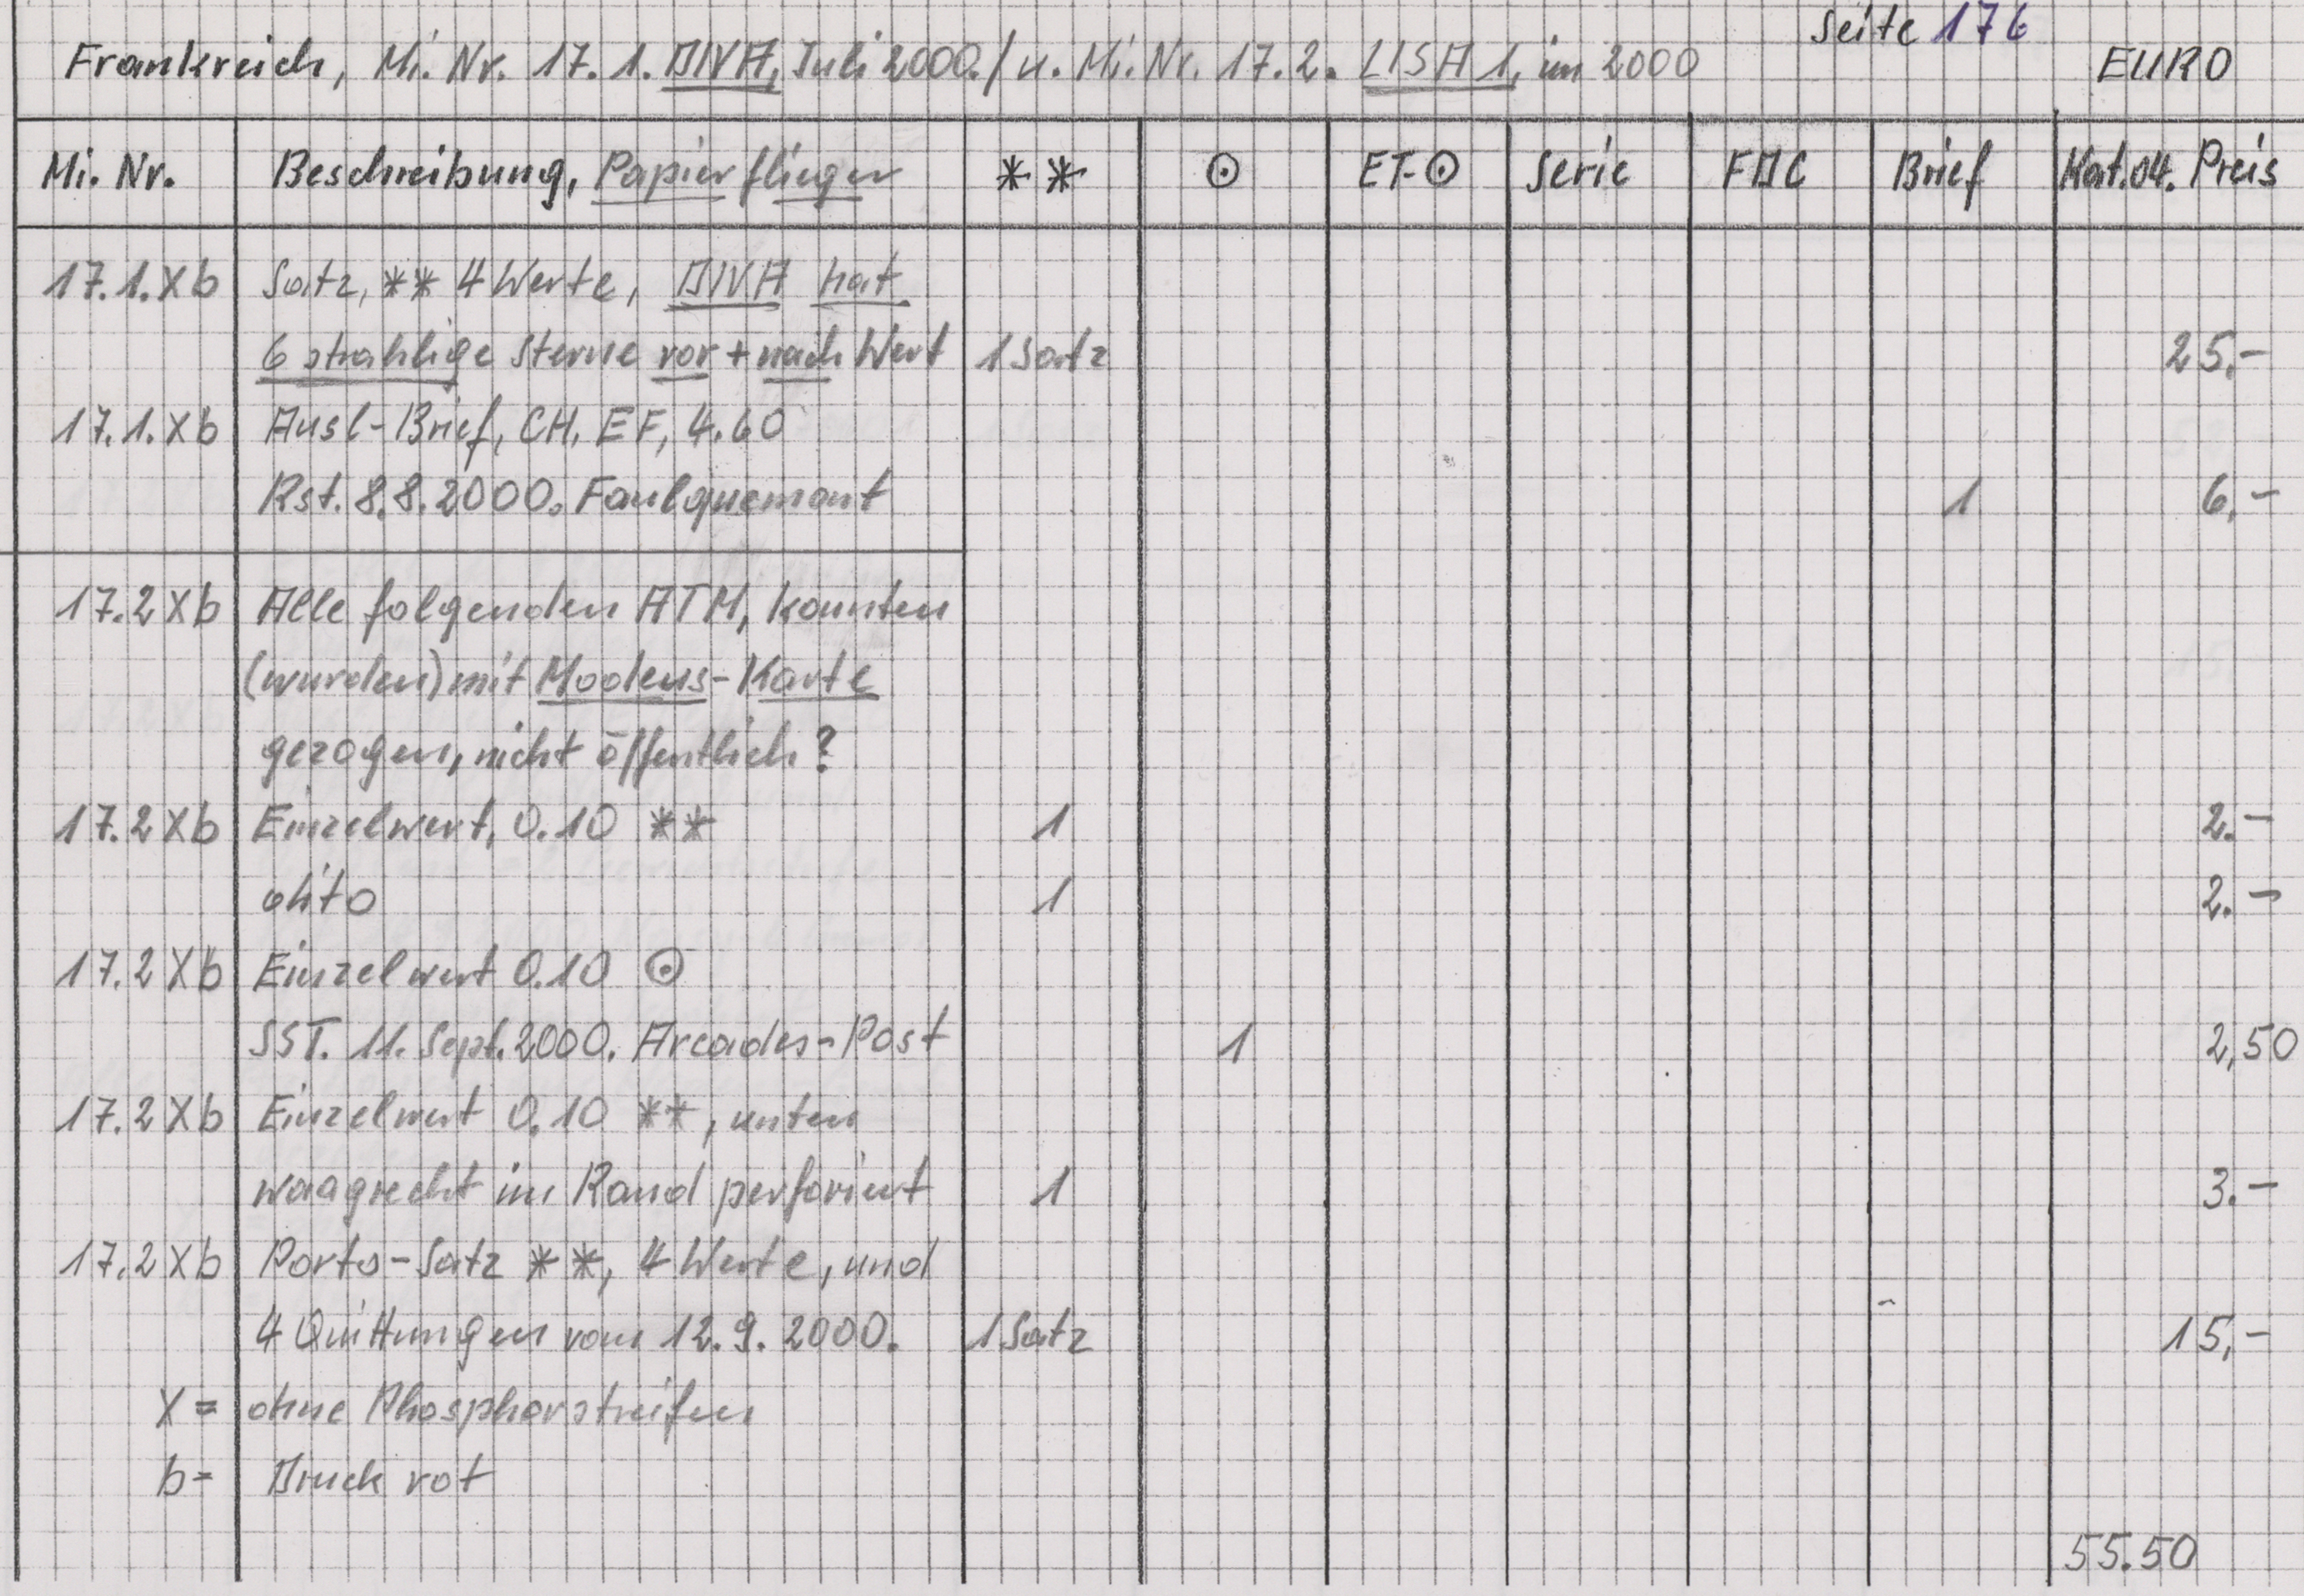 Seite 176
Frankreich, Mi. Nr. 17.1. DIVA, Juli 2000./ u. Mi. Nr. 17.2. LISA 1, im 2000 EURO
Mi. Nr. Beschreibung, Papierflieger ** ⊙ ET-⊙ Serie FDC Brief Kat.04. Preis
17.1.Xb Satz, ** 4 Werte, DIVA hat
6 strahlige Sterne vor + nach Wert 1 Satz 25,-
17.1.Xb Ausl-Brief, CH, EF, 4.60
Rst. 8.8.2000. Faulquemont 1 6,-
17.2 Xb Alle folgenden ATM, konnten
(wurden) mit Modens-Karte
gezogen, nicht öffentlich?
17.2 Xb Einzelwert, 0.10 ** 1 2.-
dito 1 2.-
17.2 Xb Einzelwert 0.10 ⊙
SST. 11. Sept. 2000. Arcades-Post 1 2,50
17.2 Xb Einzelwert 0.10 **, unten
waagrecht im Rand perforiert 1 3.-
17.2 Xb Porto-Satz **, 4 Werte, und
4 Quittungen vom 12.9.2000. 1 Satz 15,-
X = ohne Phosphorstreifen
b = Druck rot
55.50